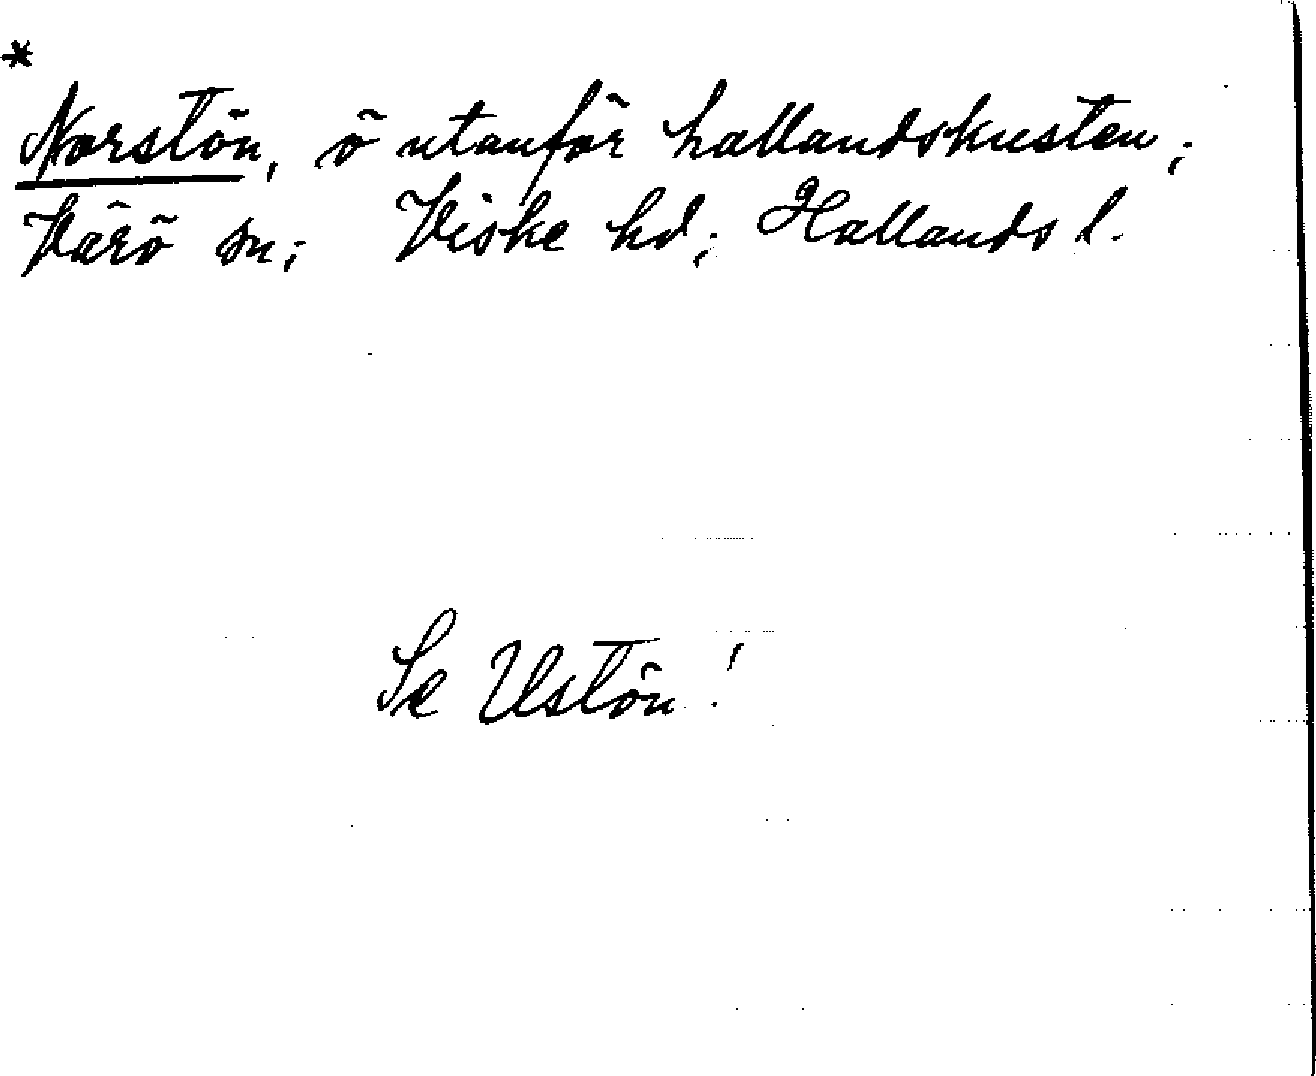 *
Norstön, ö utanför hallandskusten;
Värö sn; Viske hd; Hallands l.
Se Ustön!